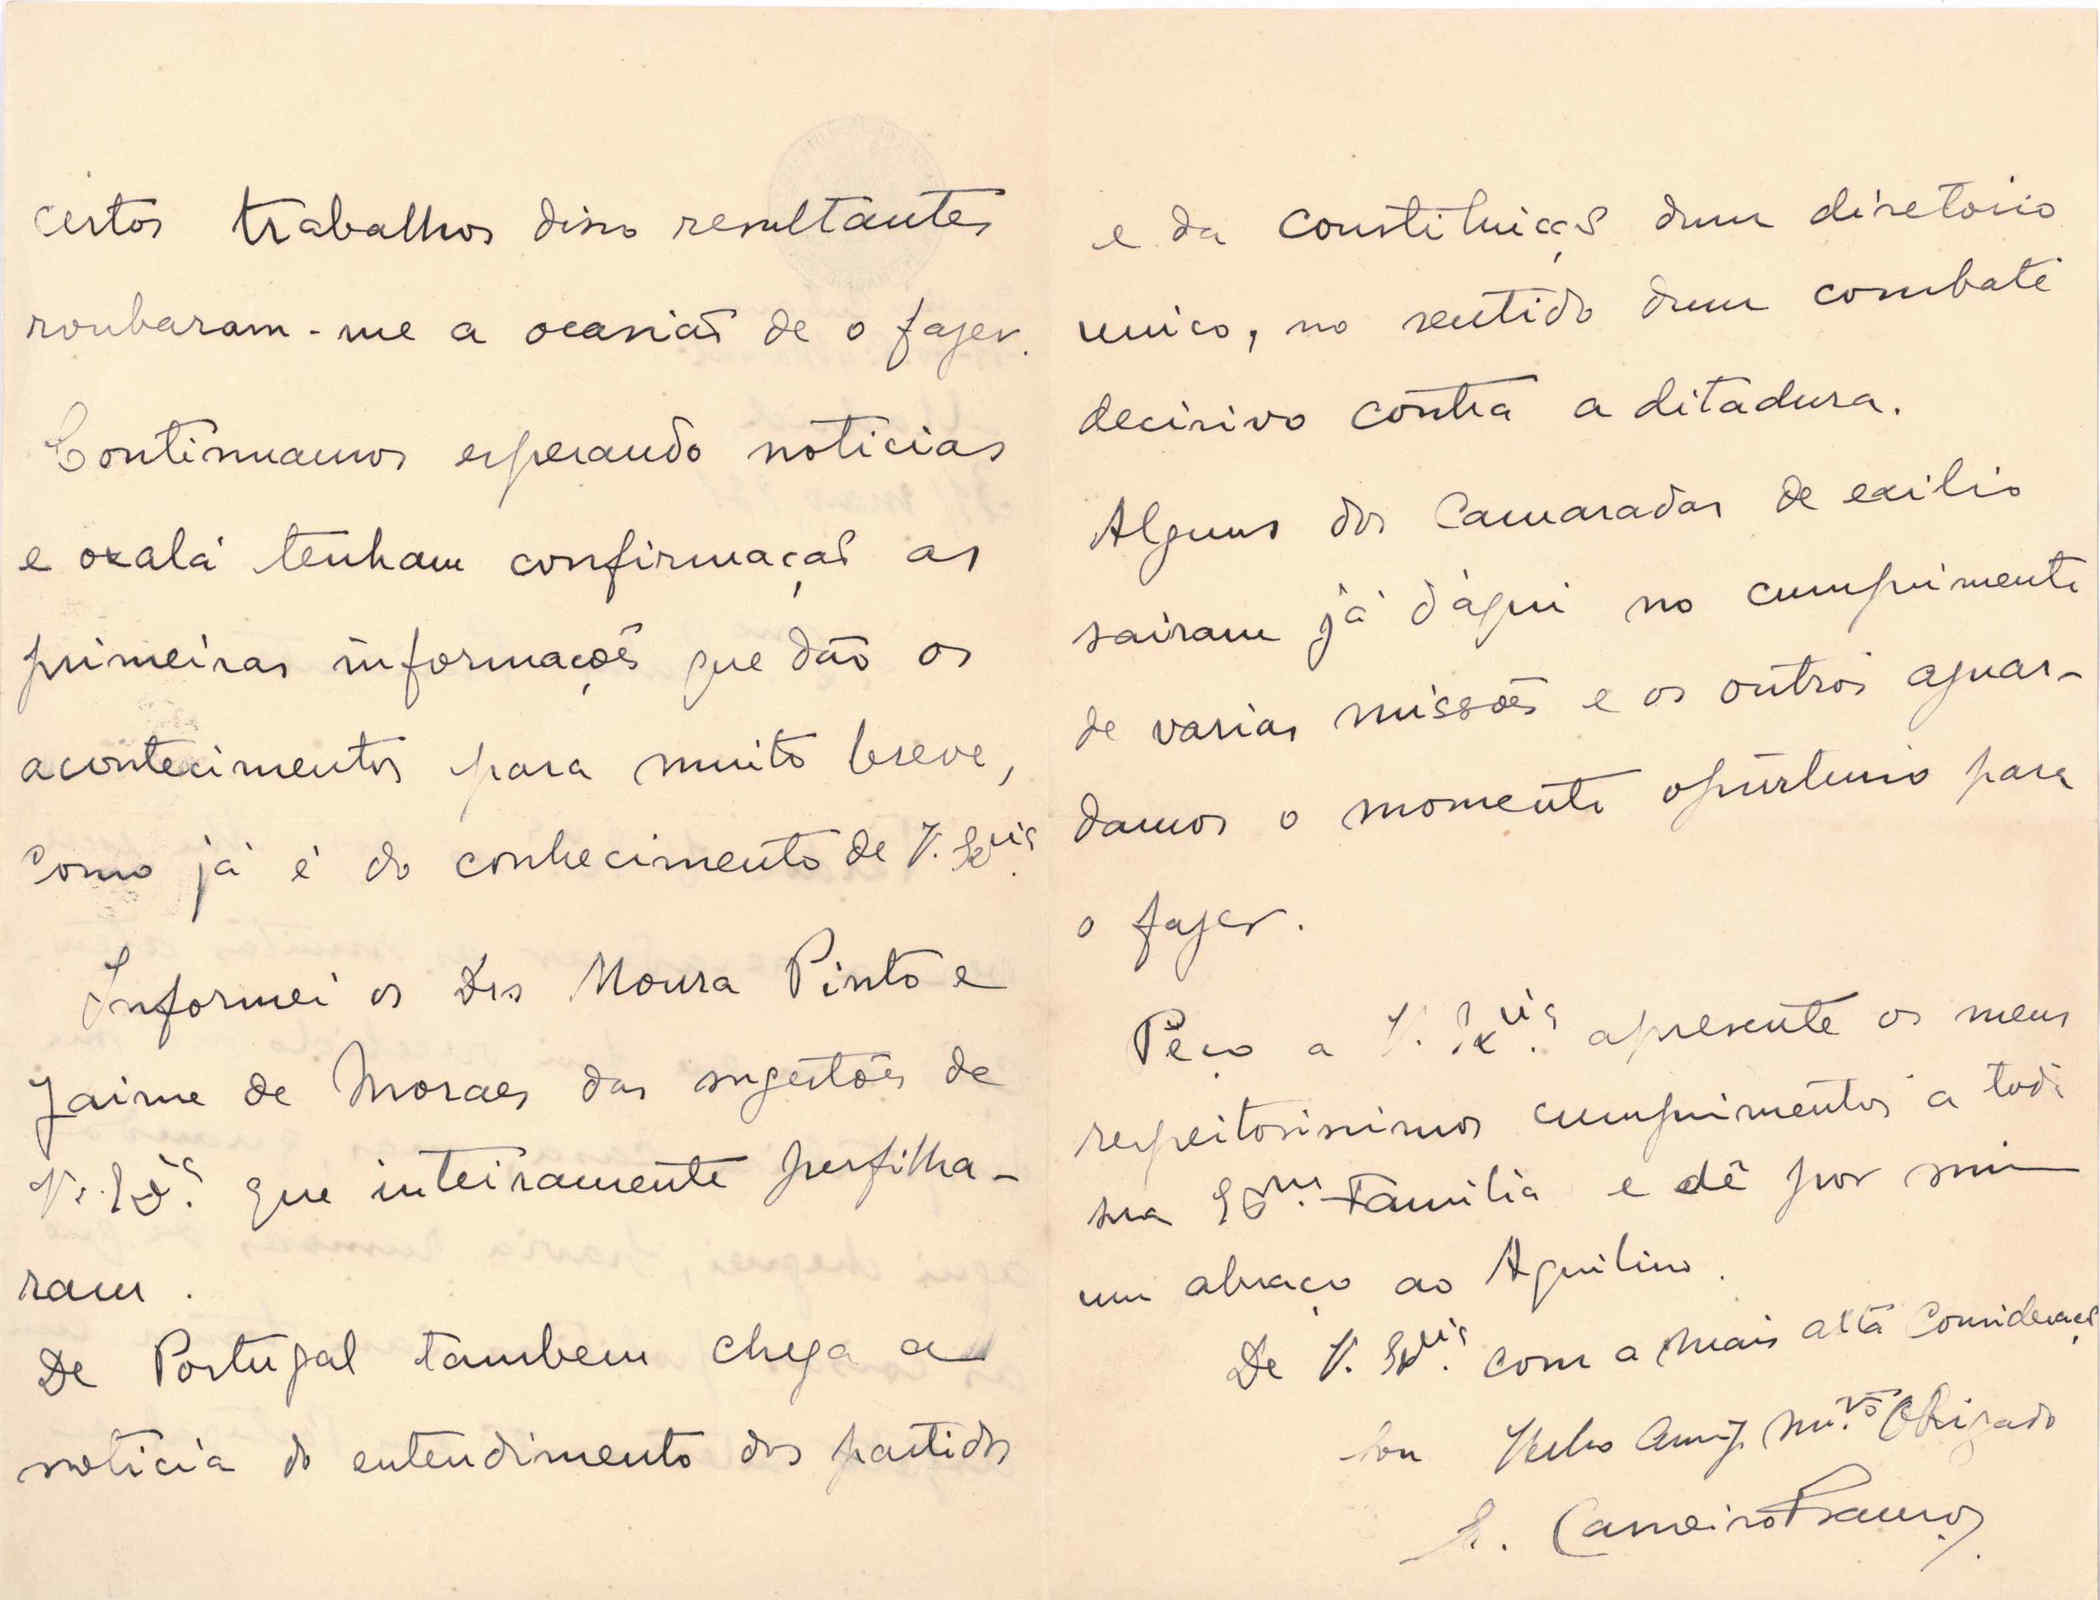 certos trabalhos disso resultantes
roubaram-me a ocasião de o fazer.
Continuamos esperando noticias
e oxalá tenham confirmação as
primeiras informações que dão os
acontecimentos para muito breve,
como já é do conhecimento de V. Ex.cia
Informei os Drs Moura Pinto e
Jaime de Moraes das sugestões de
V. Ex.cia que inteiramente perfilha-
ram.
De Portugal tambem chega a
noticia do entendimento dos partidos
e da constituição dum diretorio
unico, no sentido dum combate
decisivo contra a ditadura.
Alguns dos camaradas de exilio
sairam já d'aqui no cumprimento
de varias missões e os outros aguar-
damos o momento opurtuno para
o fazer.
Peço a V. Ex.cia apresente os meus
respeitosissimos cumprimentos a toda
sua Ex.ma Familia e dê por mim
um abraço ao Aquilino.
De V. Ex.cia com a mais alta Consideração
Sou Velho Amig. Obrigado
Carneiro Franco